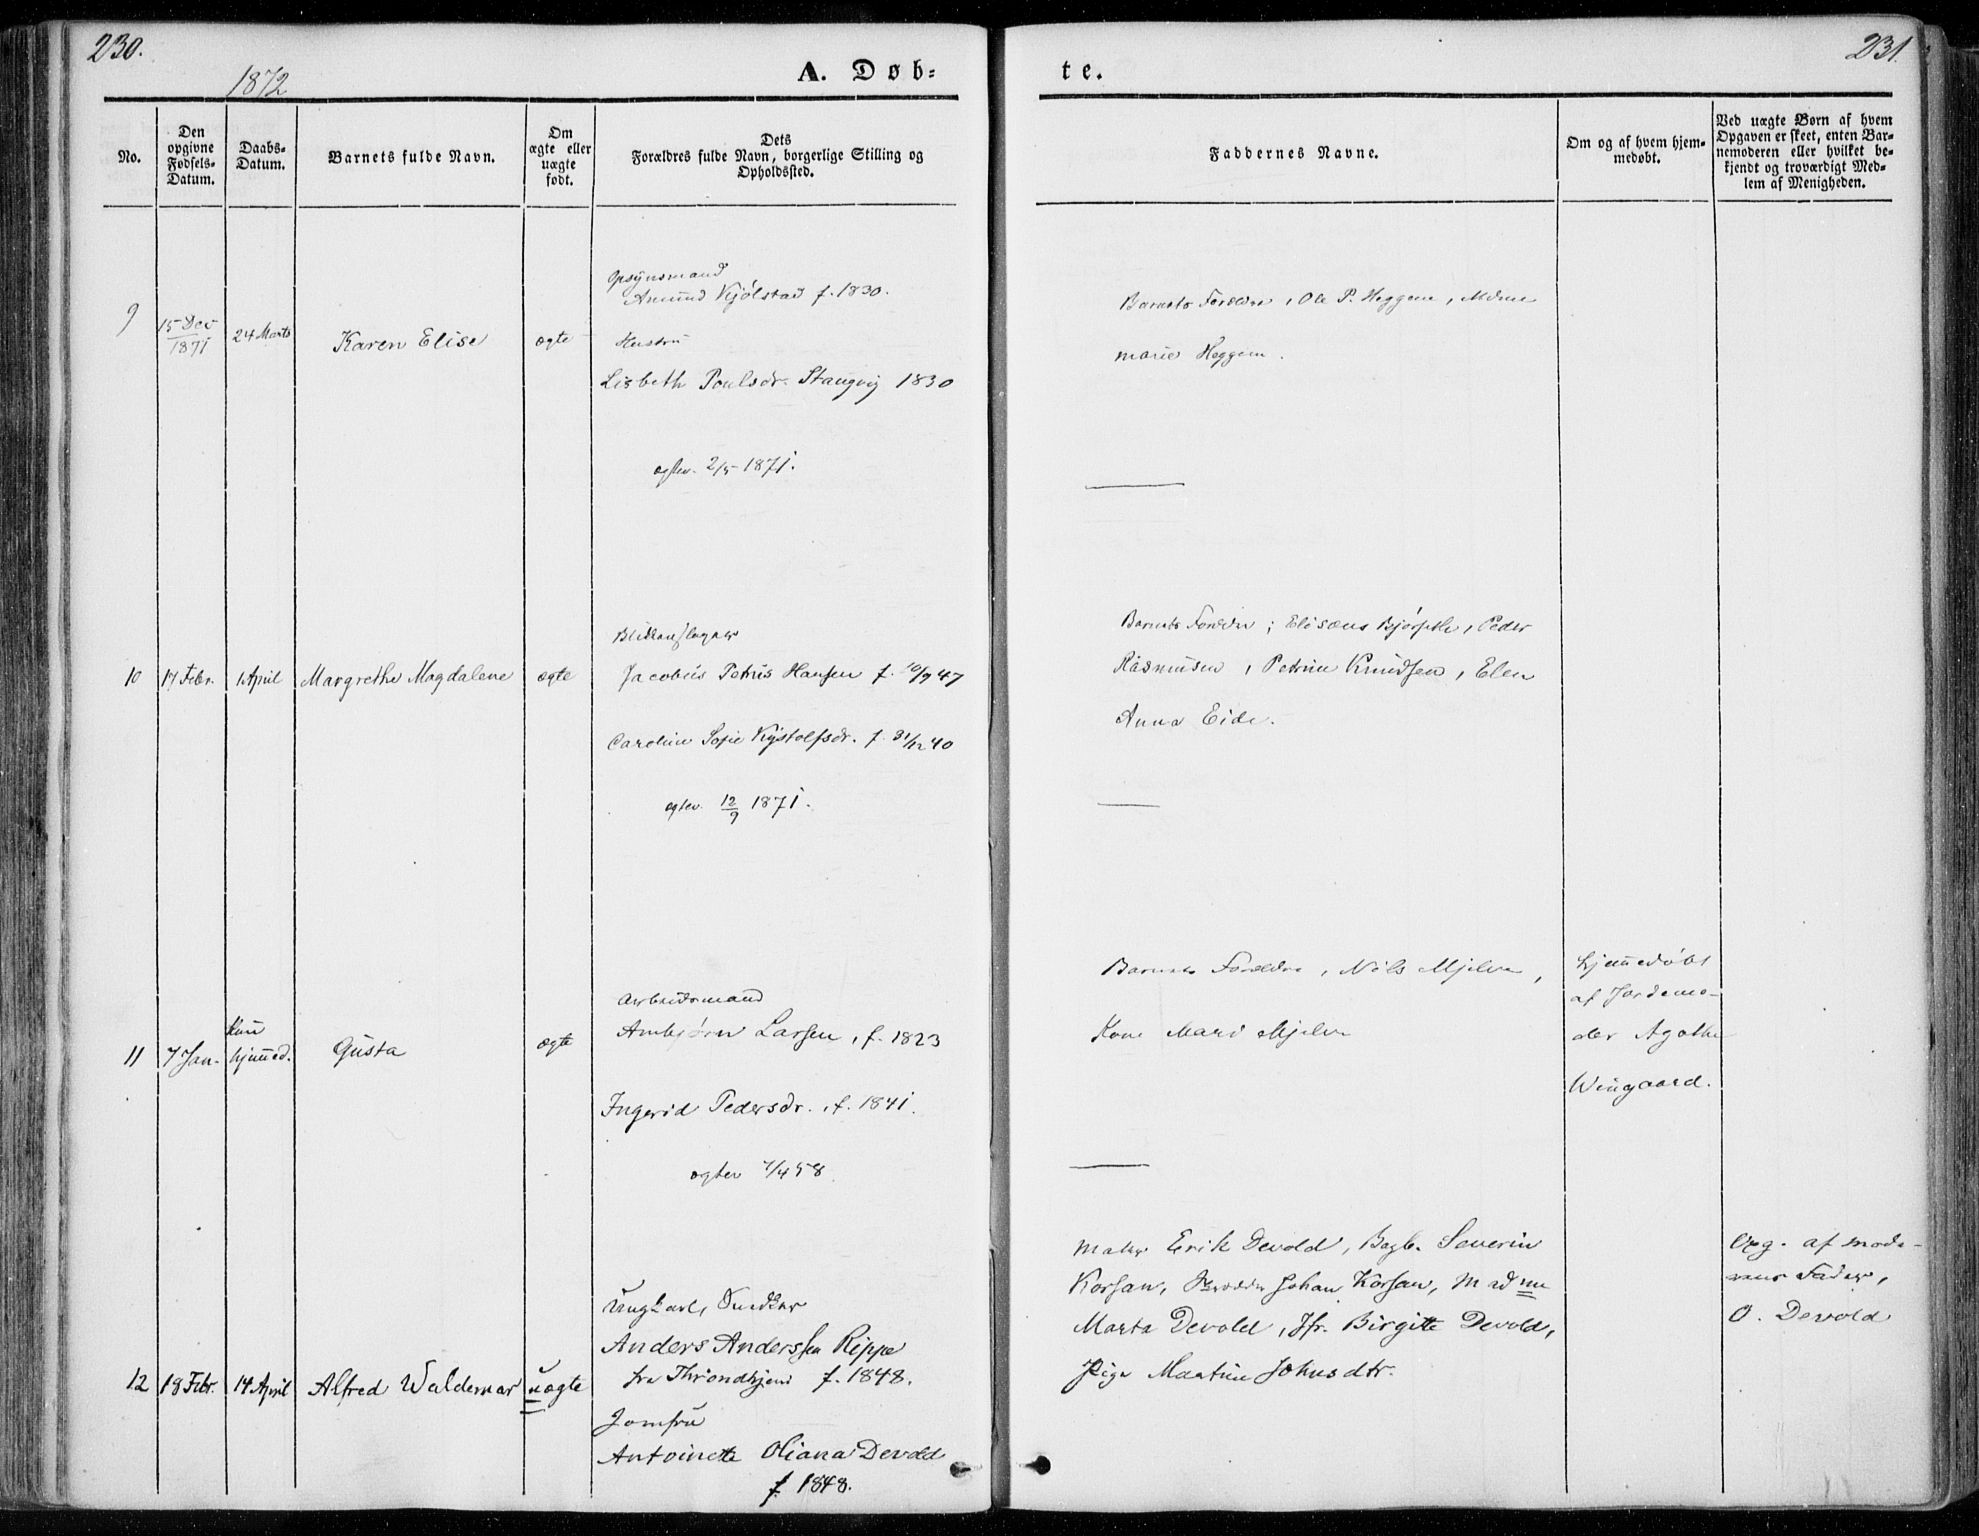 230.
1872
A. Døb-
te.
231.
No.
Den
opgivne
Fødsels-
Datum.
Daabs-
Datum.
Barnets fulde Navn.
Om
ægte eller
uægte
født.
Dets
Forældres fulde Navn, borgerlige Stilling og
Opholdssted.
Faddernes Navne.
Om og af hvem hjem-
medøbt.
Ved uægte Børn af hvem
Opgaven er skeet, enten Bar-
nemoderen eller hvilket be-
kjendt og troværdigt Med-
lem af Menigheden.
9
15 Dec
1871
24 Marts
Karen Elise
ægte
Opsynsmand
Amund Kjølstad f. 1830.
Hustru
Lisbeth Poulsdr. Stangvig 1830
ægtev. 2/5 1871.
Barnets Forældre, Ole P. Heggem,
marie Heggem.
10
17 Febr.
1 April
Margrethe Magdalene
ægte
Blikkenslager
Jacobus Petrus Hansen f. 10/9 47
Caroline Sofie f. 31/12 40
ægtev. 12/9 1871.
Barnets Forældre; Elisæus, Peder
Rasmusen, Petrine Knudsen, Elen
Anna Eide.
11
7 Jan.
Kun
hjemmed.
Gusta
ægte
Arbeidsmand
Ambjørn Larsen, f. 1823
Ingerid Pedersdr., f. 1841.
ægtev 58
Barnets Forældre, Nils Mjelve,
Kone Mari Mjelve
hjemmedøbt
af Jordemo-
der Agathe
Wingaard.
12
18 Febr.
14 April
Alfred Waldemar
uægte
Ungkarl, Snedker
Anders Anderssen Rippe
fra Throndhjem f. 1848.
Jomfru
Antoinette Oliana Devold
f. 1848.
Maler Erik Devold, Bagb. Severin
Korsan, Johan Korsan, Madme
Marta Devold, Jfr. Birgitte Devold,
Pige Martine Johnsdtr.
Opg. af mode-
rens Fader,
O. Devold